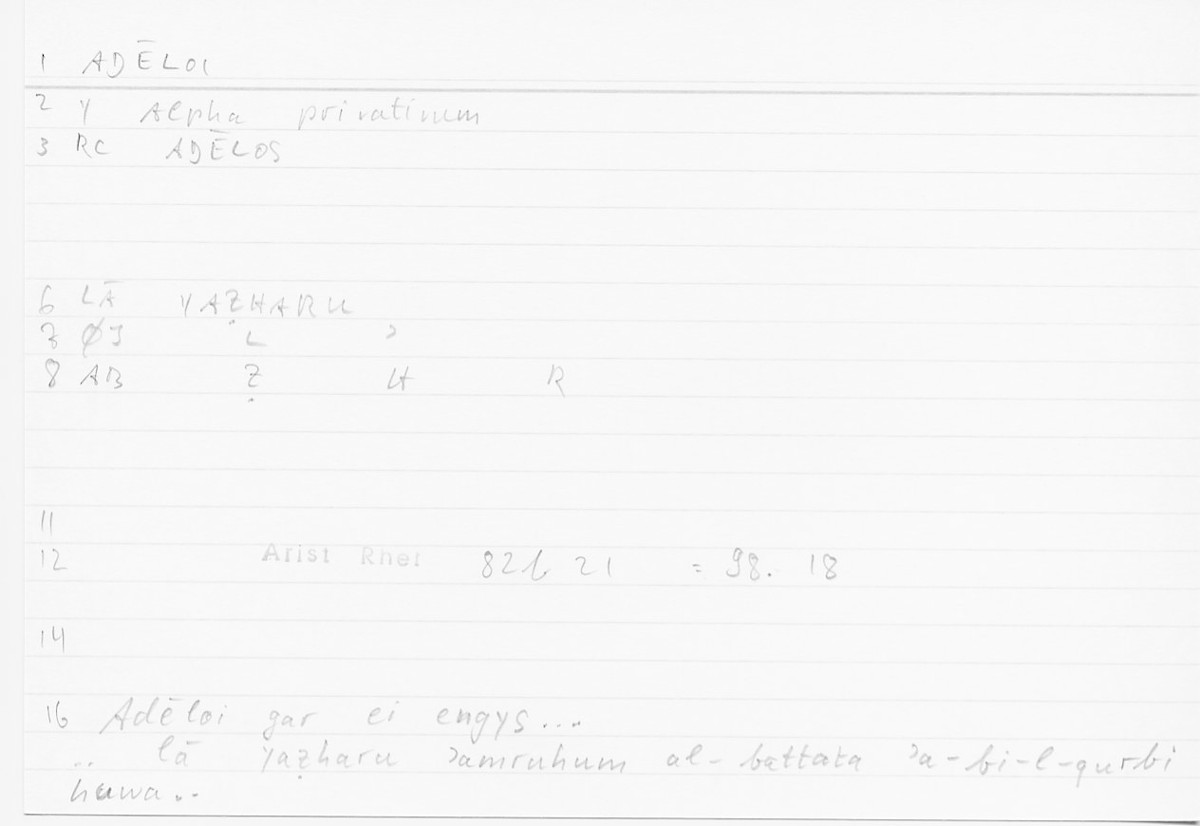 1 ADĒLOI
2 Y Alpha privativum
3 RC ADĒLOS
6 LĀ YAẒHARU
7 ØJ L ɔ
8 AB Ẓ H R
11
12 Arist Rhet 82b 21 = 98. 18
14
16 Adēloi gar ei engys....
.. lā yaẓharu ɔamruhum al-battata ɔa-bi-l-qurbi
huwa..